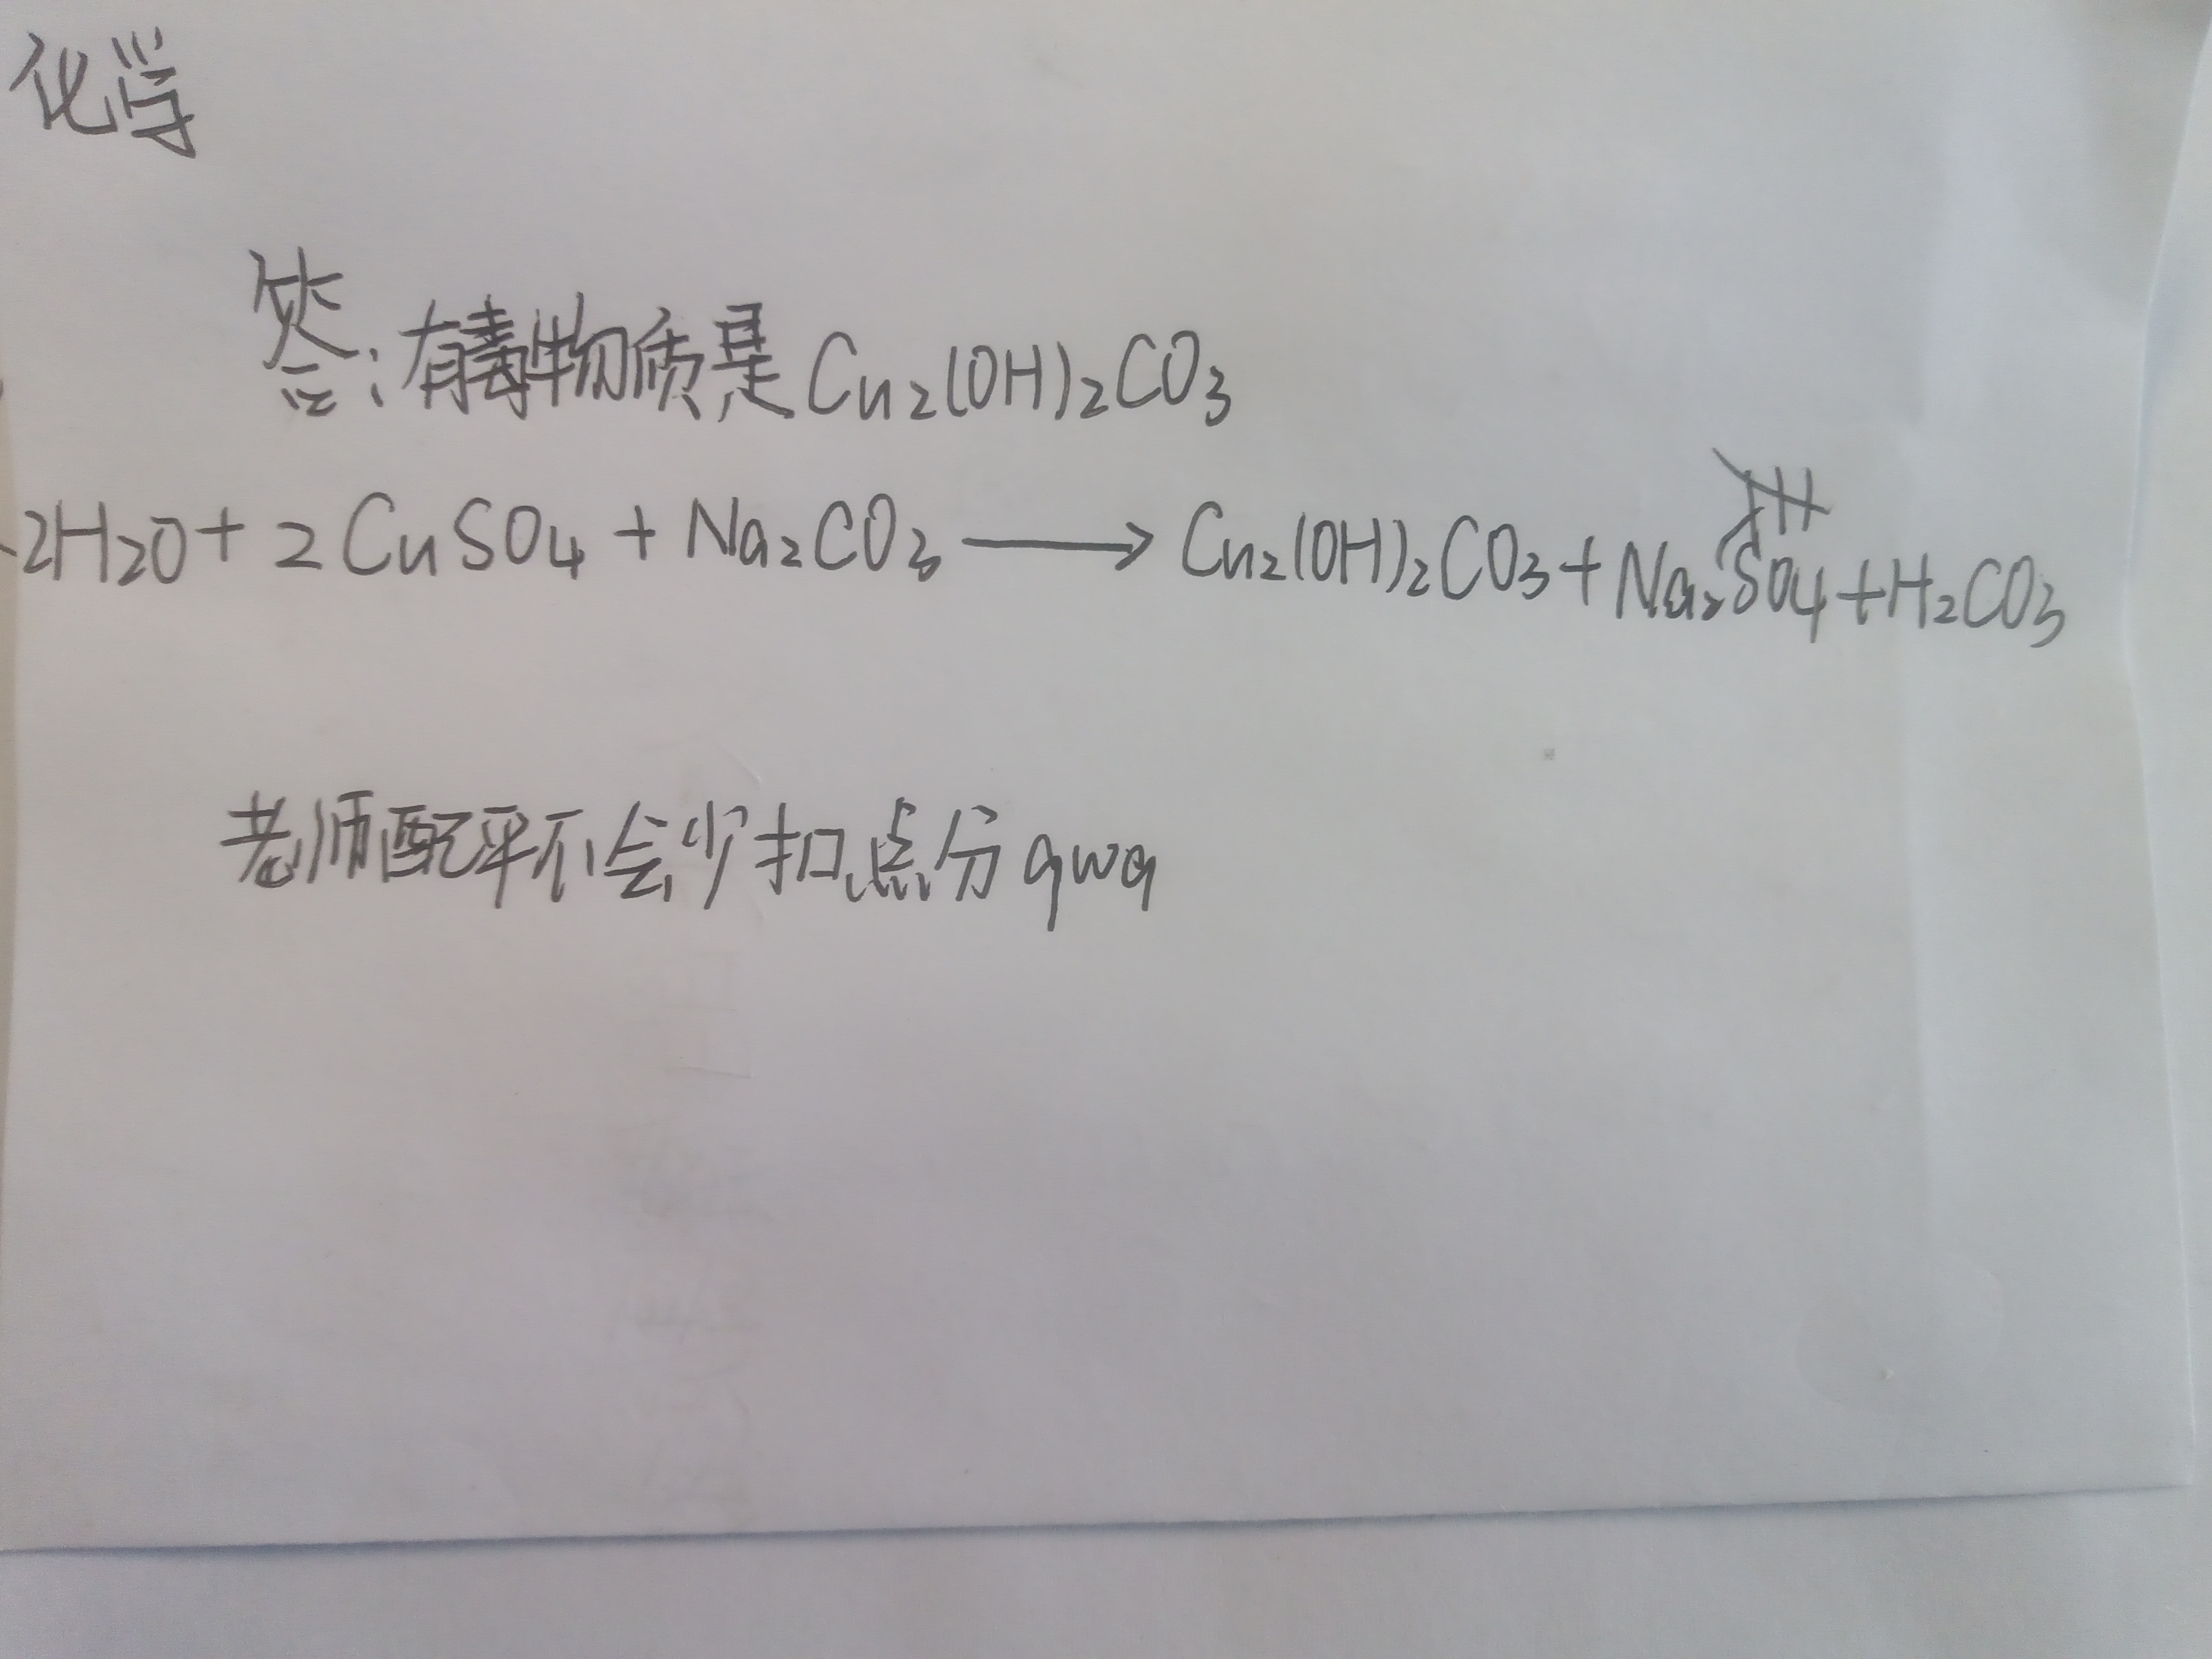 化学
答：有毒物质是Cu₂(OH)₂CO₃
2H₂O+2CuSO₄+Na₂CO₃⟶Cu₂(OH)₂CO₃+Na₂SO₄+H₂CO₃
老师配平不会少扣点分qwq